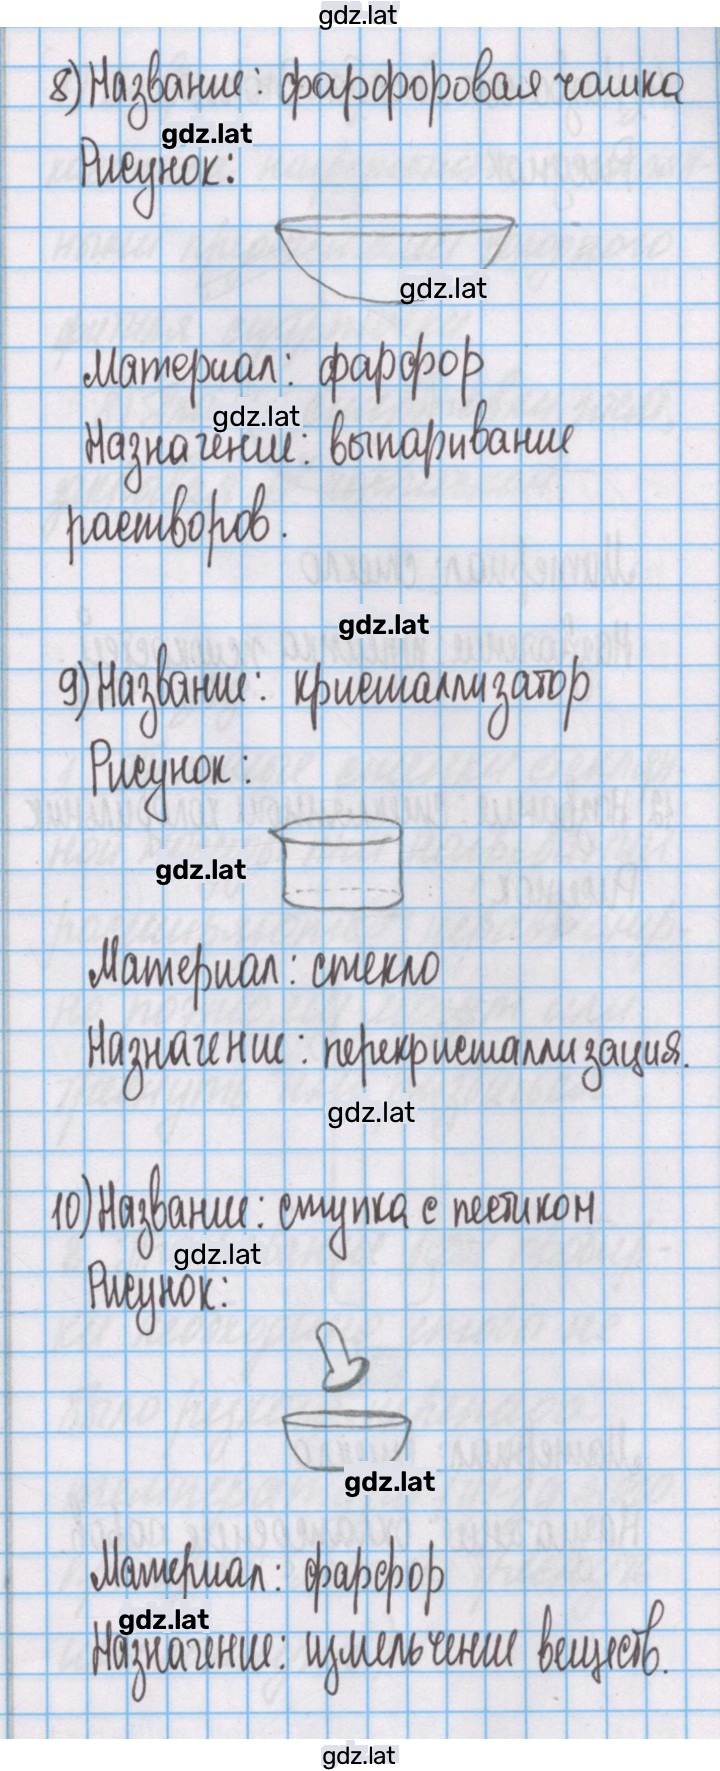 gdz.lat
8) Название: фарфоровая чашка
gdz.lat
Рисунок:
gdz.lat
Материал: фарфор
gdz.lat
Назначение: выпаривание
растворов.
gdz.lat
9) Название: кристаллизатор
Рисунок:
gdz.lat
Материал: стекло
Назначение: перекристаллизация.
gdz.lat
10) Название: ступка с пестиком
gdz.lat
Рисунок:
gdz.lat
Материал: фарфор
gdz.lat
Назначение: измельчение веществ.
gdz.lat